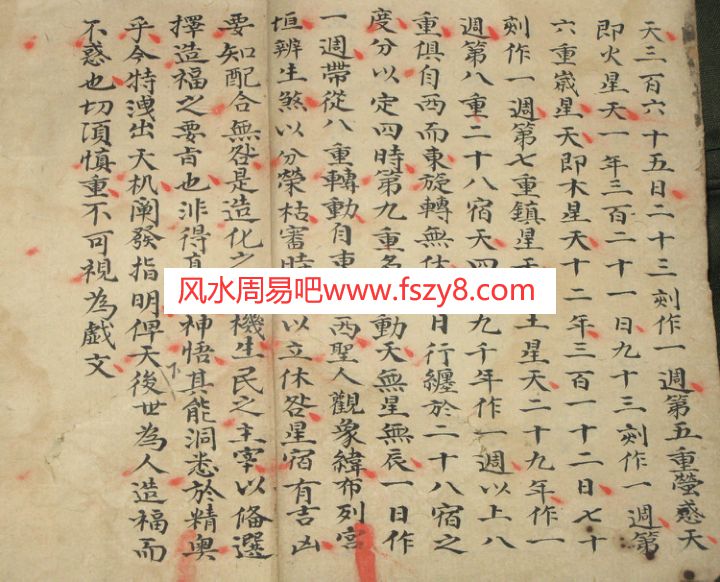 天三百六十五日二十三刻作一週第五重螢惑天
即火星天一年三百二十一日九十三刻作一週第
六重嵗星天即木星天十二年三百一十二日七十
刻作一週第七重鎮星天土星天二十九年作一
週第八重二十八宿天四九千年作一週以上八
重俱自西而東旋轉無休日行纏於二十八宿之
度分以定四時第九重名動天無星無辰一日作
一週帶從八重轉動自東西聖人觀象緯布列宮
垣辨生煞以分榮枯審時以立休咎星宿有吉凶
要知配合無咎是造化之機生民之主宰以俻選
擇造福之要旨也非得真神悟其能洞悉於精奥
乎今特洩出天机阐發指明俾天後世為人造福而
不惑也切須慎重不可視為戯文
下
风水周易吧www.fszy8.com